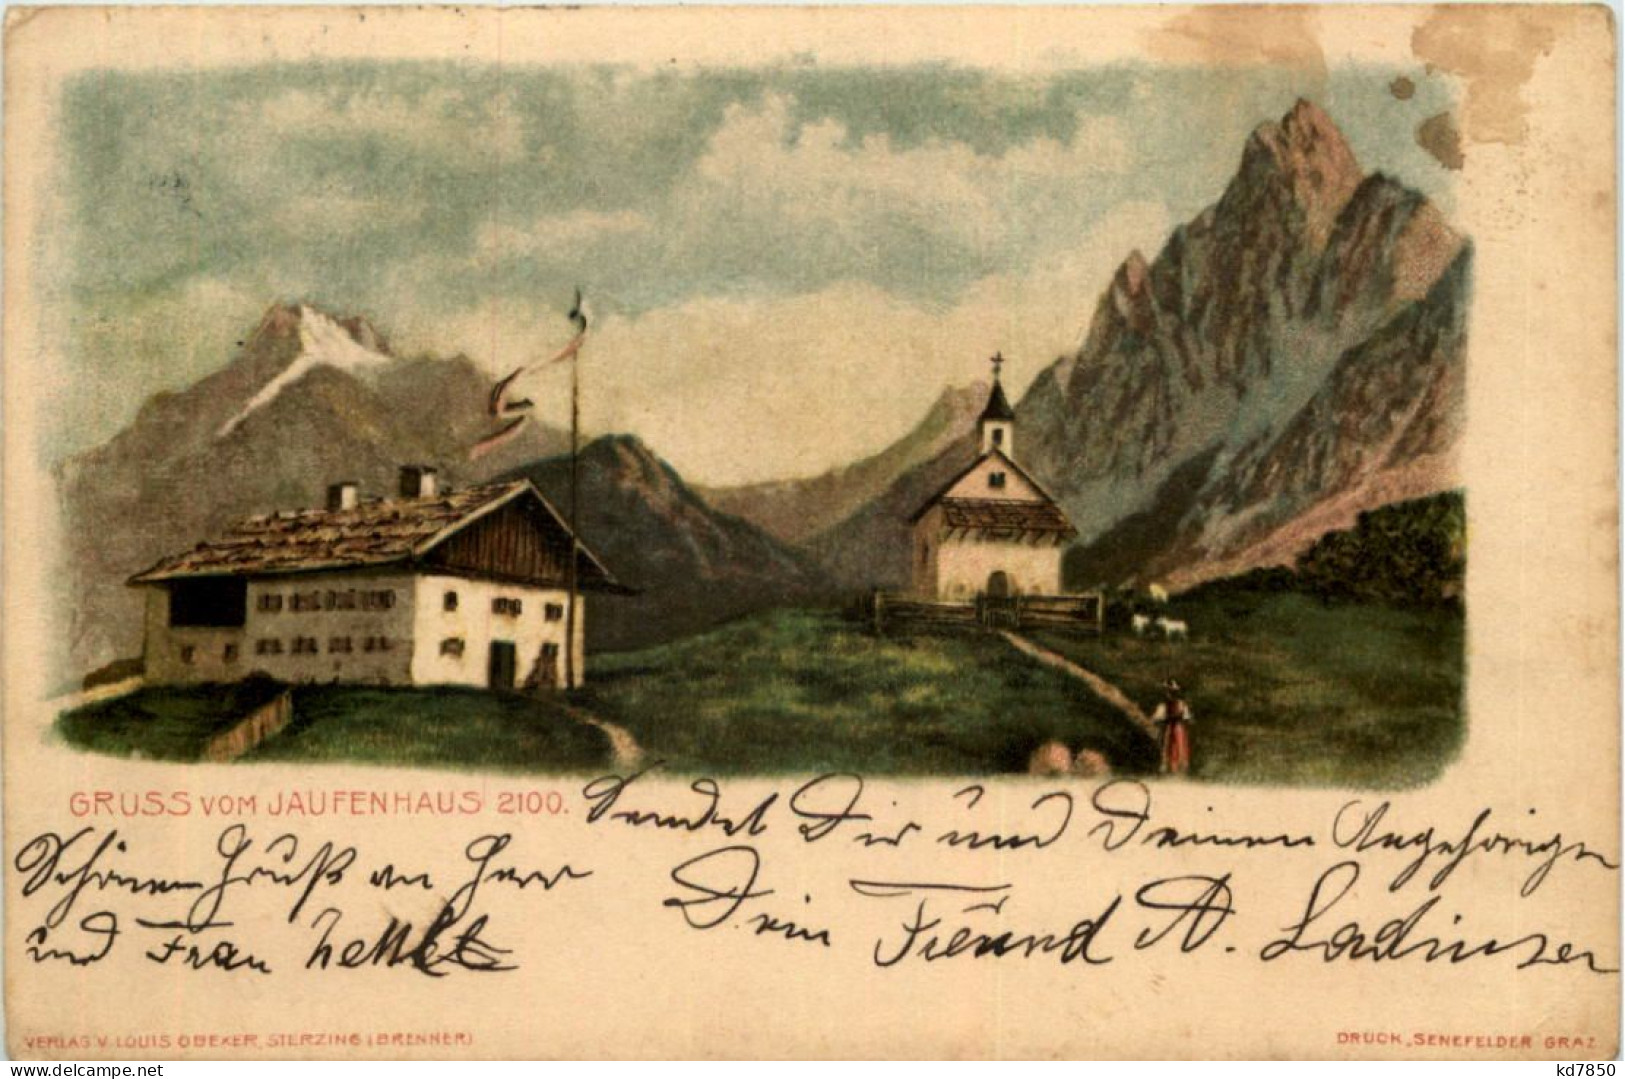 GRUSS VOM JAUFENHAUS 2100.
Sendet Dir und Deinen Angehörigen
Dein Freund A. Ladinser
Schönen Gruß an Herr
und Frau
VERLAG V. LOUIS OBEXER, STERZING (BRENNER)
DRUCK „SENEFELDER GRAZ
kd7850